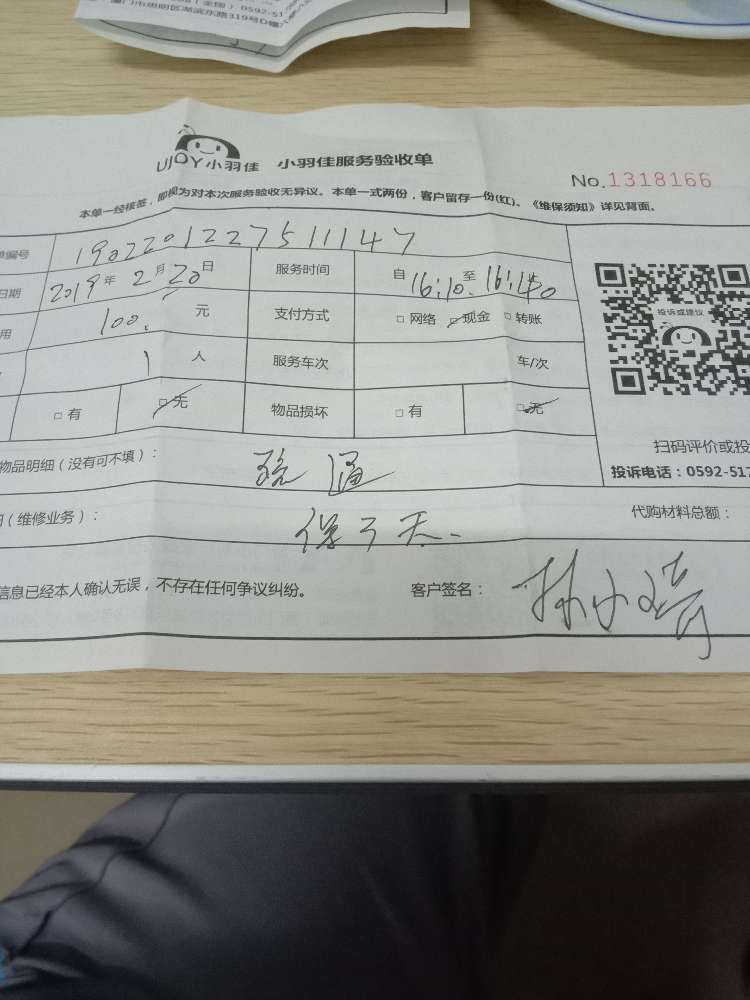 （全国） 0592-517
厦门市思明区湖滨东路319号D幢
UJOY小羽佳 小羽佳服务验收单
No.1318166
本单一经核签，即视为对本次服务验收无异议。本单一式两份，客户留存一份(红)、《维保须知》详见背面。
单编号 1902201227511147
日期 2019年2月20日 服务时间 自16:10至16:40
用 100.元 支付方式 □网络 □现金 □转账
投诉或建议
1人 服务车次 车/次
□有 □无 物品损坏 □有 □无
扫码评价或投
物品明细（没有可不填）： 疏通
投诉电话：0592-517
（维修业务）： 保了天. 代购材料总额：
信息已经本人确认无误，不存在任何争议纠纷。 客户签名：